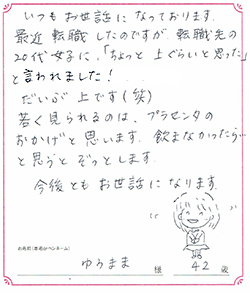 いつもお世話になっております.
最近 転職したのですが 転職先の
20代女子に、「ちょっと上ぐらいと思った」
と言われました！
だいが上です(笑)
若く見られるのは、プラセンタの
おかげと思います. 飲まなかったら…
と思うとぞっとします.
今後ともお世話になります.
お名前(本名orペンネーム)
ゆうまま 様 42 歳